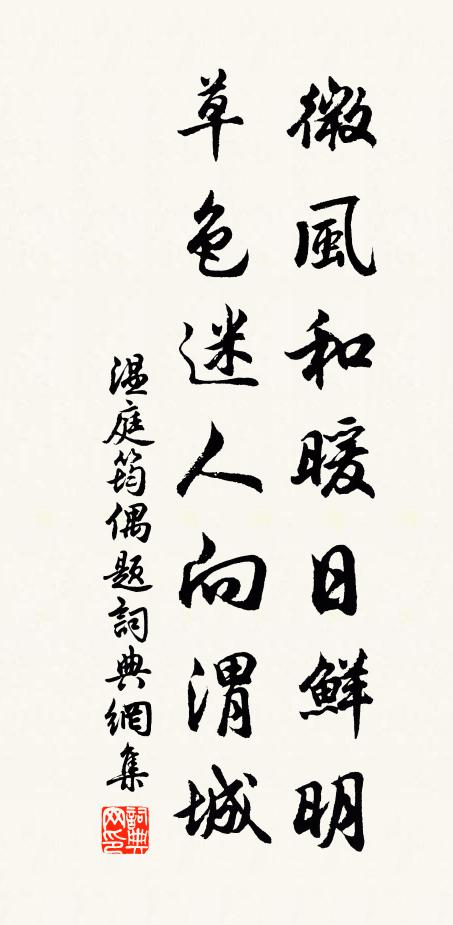 微風和暖日鮮明
草色迷人向渭城
温庭筠偶題詞典網集
詞典
网印